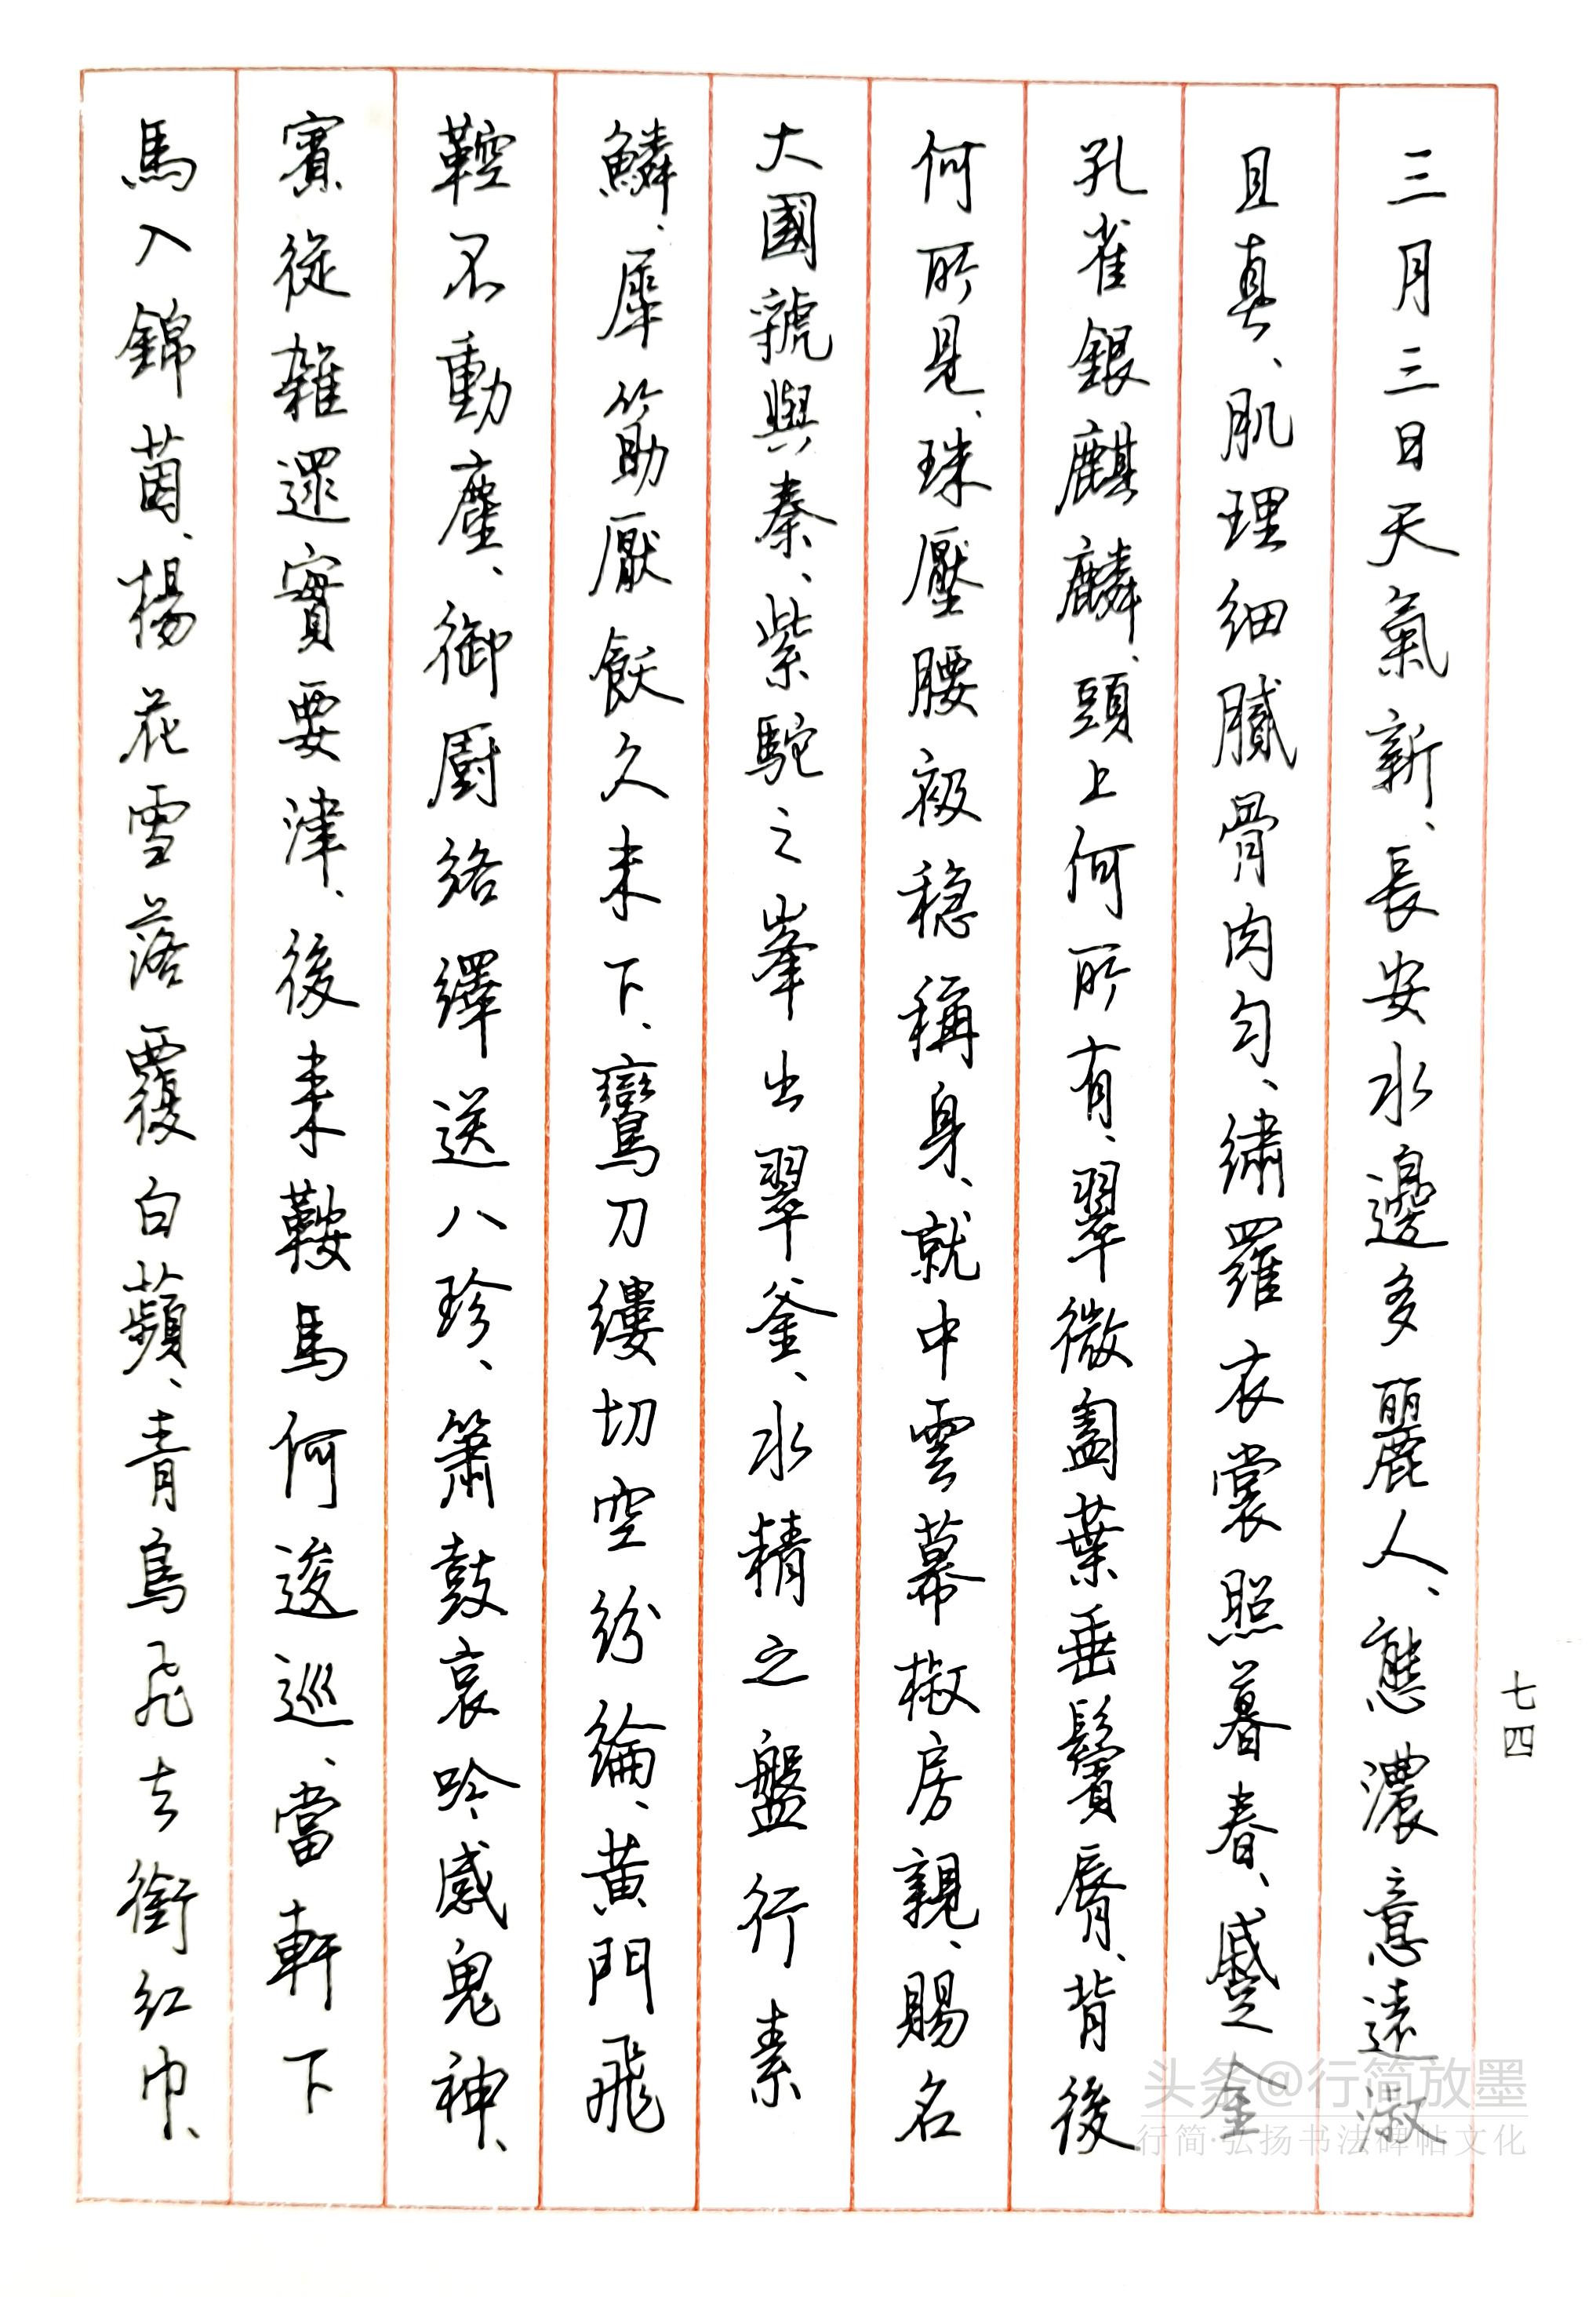 三月三日天氣新、長安水邊多麗人、態濃意遠淑
且真、肌理細膩骨肉勻、繡羅衣裳照暮春、蹙金
孔雀銀麒麟、頭上何所有、翠微㔩葉垂鬢脣、背後
何所見、珠壓腰衱穩稱身、就中雲幕椒房親、賜名
大國虢與秦、紫駝之峯出翠釜、水精之盤行素
鱗、犀筯厭飫久未下、鸞刀縷切空紛綸、黃門飛
鞚不動塵、御厨絡繹送八珍、簫鼓哀吟感鬼神、
賓從雜遝實要津、後來鞍馬何逡巡、當軒下
馬入錦茵、楊花雪落覆白蘋、青鳥飛去銜紅巾、
七四
头条@行简放墨
行简·弘扬书法碑帖文化